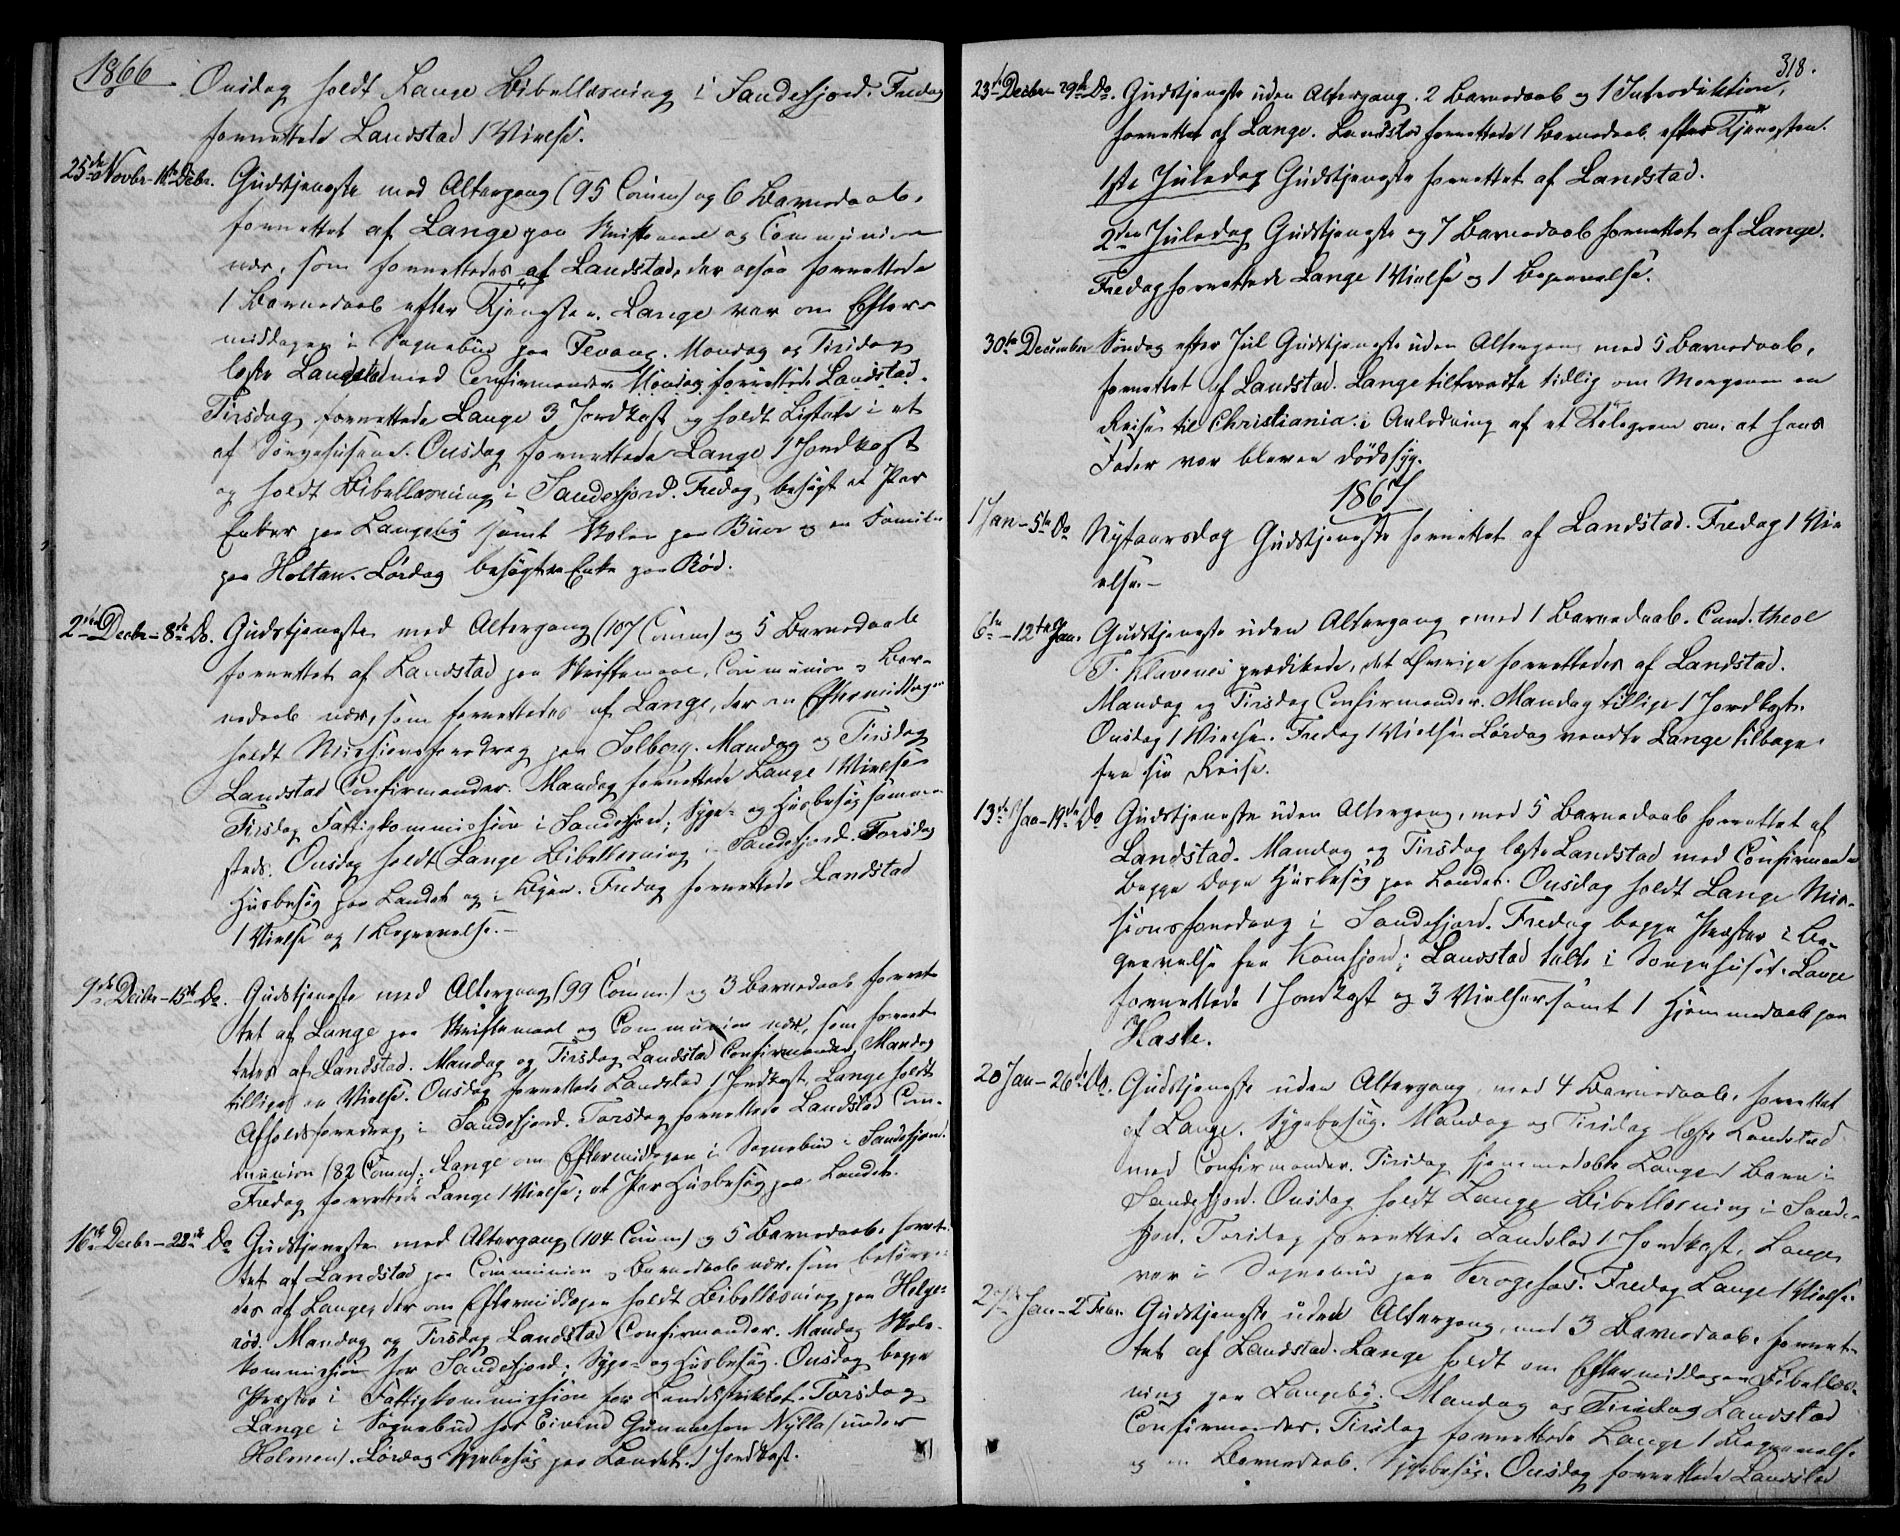 1866
Onsdag holdt Lange Bibellæsning i Sandefjord. Fredag
forrettede Landstad 1 Vielse.
25de Novbr - 1ste Decbr. Gudstjeneste med Altergang (95 Comm) og 6 Barnedaab,
forrettet af Lange paa Skriftemaal og Communion
nær, som forrettedes af Landstad, der ogsaa forrettede
1 Barnedaab efter Tjenesten. Lange var om Efter-
middagen i Sognebud paa Fevang. Mandag og Tirsdag
læste Landstad med Confirmander. Mandag forrettede Landstad.
Tirsdag forrettede Lange 3 Jordkast og holdt Ligtale i et
af Sørgehusene. Onsdag forrettede Lange 1 Jordkast
og holdt Bibellæsning i Sandefjord. Fredag besøgt et Par
Enker paa Langeby samt Skolen paa Buer og en Familie
paa Holtan. Lørdag besøgt en Enke paa Rød.
2den Decbr - 8de Do. Gudstjeneste med Altergang (107 Comm) og 5 Barnedaab
forrettet af Landstad paa Skriftemaal, Communion og Bar-
nedaab nær, som forrettedes af Lange, der om Eftermiddagen
holdt Missionsforedrag paa Solberg. Mandag og Tirsdag
Landstad Confirmander. Mandag forrettede Lange 1 Vielse
Tirsdag Fattigkommission i Sandefjord; Syge- og Husbesøg samme-
steds. Onsdag holdt Lange Bibellæsning i Sandefjord. Torsdag
Husbesøg paa Landet og i Byen. Fredag forrettede Landstad
1 Vielse og 1 Begravelse.-
9de Decbr - 15de Do. Gudstjeneste med Altergang (99 Comm.) og 3 Barnedaab forret-
tet af Lange paa Skriftemaal og Communion nær, som forret-
tedes af Landstad. Mandag og Tirsdag Landstad Confirmander, Mandag
tillige en Vielse. Onsdag forrettede Landstad 1 Jordkast, Lange holdt
Afholdsforedrag i Sandefjord. Torsdag forrettede Landstad Com-
munion (82 Comm); Lange om Eftermiddagen i Sognebud i Sandefjord.
Fredag forrettede Lange 1 Vielse; et Par Husbesøg paa Landet.
16de Decbr - 22de Do Gudstjeneste med Altergang (104 Comm) og 5 Barnedaab, forret-
tet af Landstad paa Communion og Barnedaab nær, som besørge-
des af Lange, der om Eftermiddagen holdt Bibellæsning paa Helge-
rød. Mandag og Tirsdag Landstad Confirmander. Mandag Skole-
kommission for Sandefjord; Syge- og Husbesøg. Onsdag begge
Præster i Fattigkommission for Landdistriktet. Torsdag
Lange i Sognebud hos Eivind Gunnersen Nylla (under
Holmen). Lørdag Sygebesøg paa Landet. 1 Jordkast.
318.
23de Decbr - 29de Do. Gudstjeneste uden Altergang. 2 Barnedaab og 1 Introduktion,
forrettet af Lange. Landstad forrettede 1 Barnedaab efter Tjenesten.
1ste Juledag Gudstjeneste forrettet af Landstad.
2den Juledag Gudstjeneste og 7 Barnedaab forrettet af Lange.
Fredag forrettede Lange 1 Vielse og 1 Begravelse.
30te December Søndag efter Jul Gudstjeneste uden Altergang med 5 Barnedaab,
forrettet af Landstad. Lange tiltraadte tidlig om Morgenen en
Reise til Christiania i Anledning af et Telegram om, at hans
Fader var bleven dødssyg.
1867
1 Jan - 5te Do Nytaarsdag Gudstjeneste forrettet af Landstad. Fredag 1 Vi-
else.-
6te - 12te Jan. Gudstjeneste uden Altergang med 1 Barnedaab. Cand. theol
T. Klavenes prædikede, det Øvrige forrettedes af Landstad.
Mandag og Tirsdag Confirmander. Mandag tillige 1 Jordkast.
Onsdag 1 Vielse. Fredag 1 Vielse. Lørdag vendte Lange tilbage
fra sin Reise.
13de Jan - 19de Do Gudstjeneste uden Altergang, med 5 Barnedaab forrettet af
Landstad. Mandag og Tirsdag læste Landstad med Confirmander
begge Dage Husbesøg paa Landet. Onsdag holdt Lange Mis-
sionsforedrag i Sandefjord. Fredag begge Præster i Be-
gravelse fra Kamfjord; Landstad talte i Sørgehuset. Lange
forrettede 1 Jordkast og 3 Vielser samt 1 Hjemmedaab paa
Hasle.
20 Jan - 26de Do. Gudstjeneste uden Altergang, med 4 Barnedaab, forrettet
af Lange. Sygebesøg. Mandag og Tirsdag læste Landstad
med Confirmander. Tirsdag hjemmedøbte Lange 1 Barn i
Sandefjord. Onsdag holdt Lange Bibellæsning i Sande-
fjord. Torsdag forrettede Landstad 1 Jordkast, Lange
var i Sognebud paa Fredag Lange 1 Vielse.
27de Jan - 2 Febr. Gudstjeneste uden Altergang, med 3 Barnedaab, forret-
tet af Landstad. Lange holdt om Eftermiddagen Bibellæs-
ning paa Langeby. Mandag og Tirsdag Landstad
Confirmander. Tirsdag forrettede Lange 1 Begravelse
og en Barnedaab. Sygebesøg. Onsdag forrettede Landstad